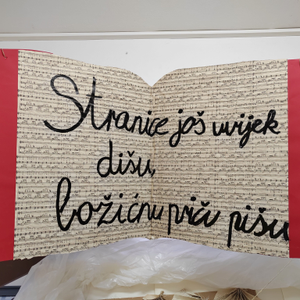 Stranice još uvijek
dišu,
božićnu priču pišu